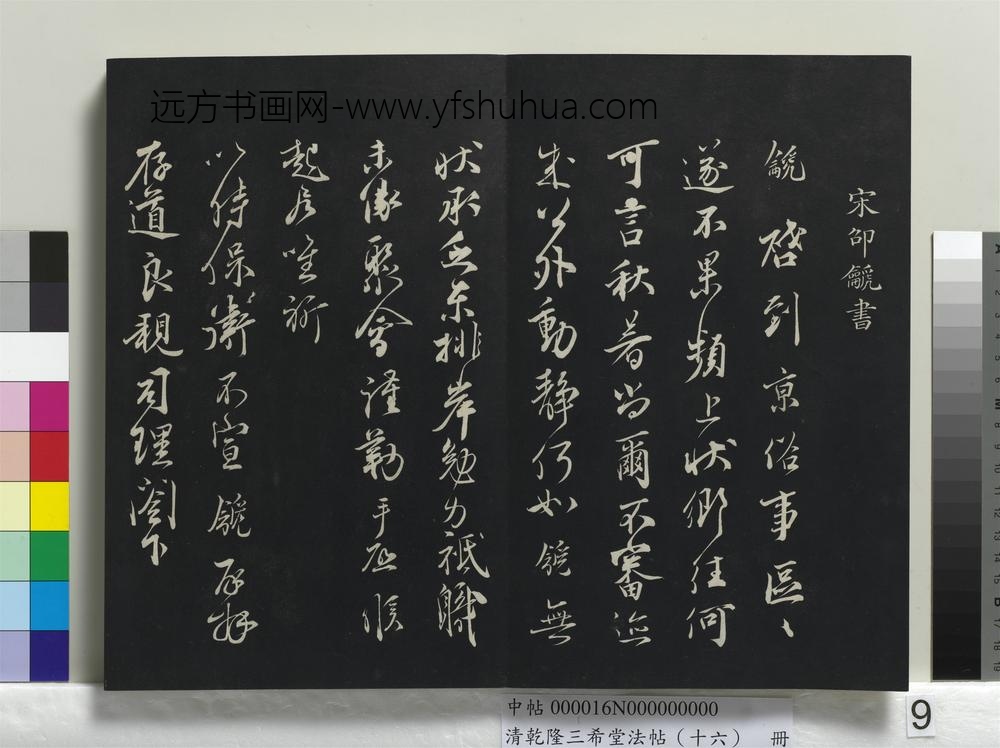 远方书画网-www.yfshuhua.com
宋邵䶵書
䶵啓到京俗事區〻
遂不果頻上狀鄉往何
可言秋暑尚爾不審迩
來公外動靜何如䶵無
狀承乏東排岸勉力祇職
未緣聚會謹勒手啓候
起居唯祈
以時保衛不宣䶵啓拜
存道良親司理閤下
中帖 000016N000000000
清乾隆三希堂法帖（十六） 冊
9